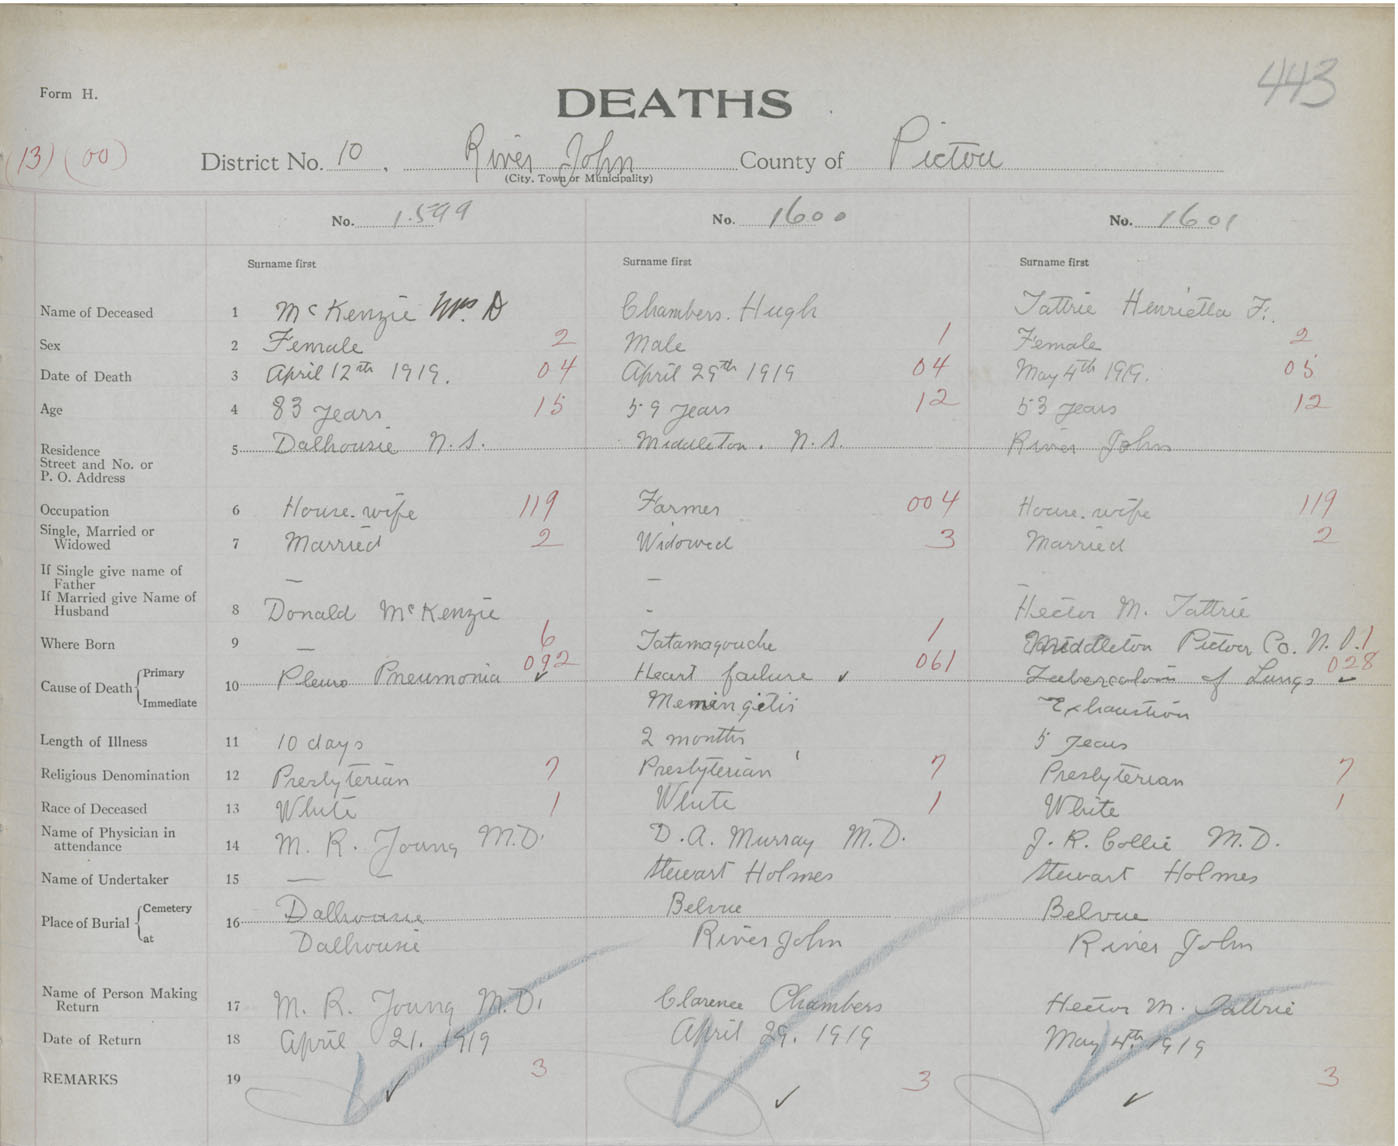 443
Form H.
DEATHS
(13) (00)
District No. 10, River John County of Pictou
(City. Town or Municipality)
No. 1599 No. 1600 No. 1601
Surname first Surname first Surname first
Name of Deceased 1 McKenzie Mrs. D Chambers. Hugh Tattrie Henrietta F.
Sex 2 Female 2 Male 1 Female 2
Date of Death 3 April 12th 1919. 04 April 29th 1919 04 May 4th 1919. 05
Age 4 83 years 15 59 years 12 53 years 12
Residence
Street and No. or
P. O. Address
5 Dalhousie N.S. Middleton. N.S. River John
Occupation 6 House-wife 119 Farmer 004 House-wife 119
Single, Married or
Widowed 7 Married 2 Widowed 3 Married 2
If Single give name of
Father — — —
If Married give Name of
Husband 8 Donald McKenzie - Hector M. Tattrie
Where Born 9 — 6 Tatamagouche 1 Middleton Pictou Co. N.S. 1
Cause of Death Primary 10 Pleuro Pneumonia 092 ✓ Heart failure ✓ 061 Tuberculosis of Lungs 028 ✓
Immediate Memingitis Exhaustion
Length of Illness 11 10 days 2 months 5 years
Religious Denomination 12 Presbyterian 7 Presbyterian 7 Presbyterian 7
Race of Deceased 13 White 1 White 1 White 1
Name of Physician in
attendance 14 M. R. Young M.D. D. A. Murray M.D. J. R. Collie M.D.
Name of Undertaker 15 — — Stewart Holmes Stewart Holmes
Place of Burial Cemetery 16 Dalhousie Belvue Belvue
at Dalhousie River John River John
Name of Person Making
Return 17 M. R. Young M.D. Clarence Chambers Hector M. Tattrie
Date of Return 18 April 21. 1919 April 29. 1919 May 4th 1919
REMARKS 19 ✓ 3 ✓ 3 ✓ 3